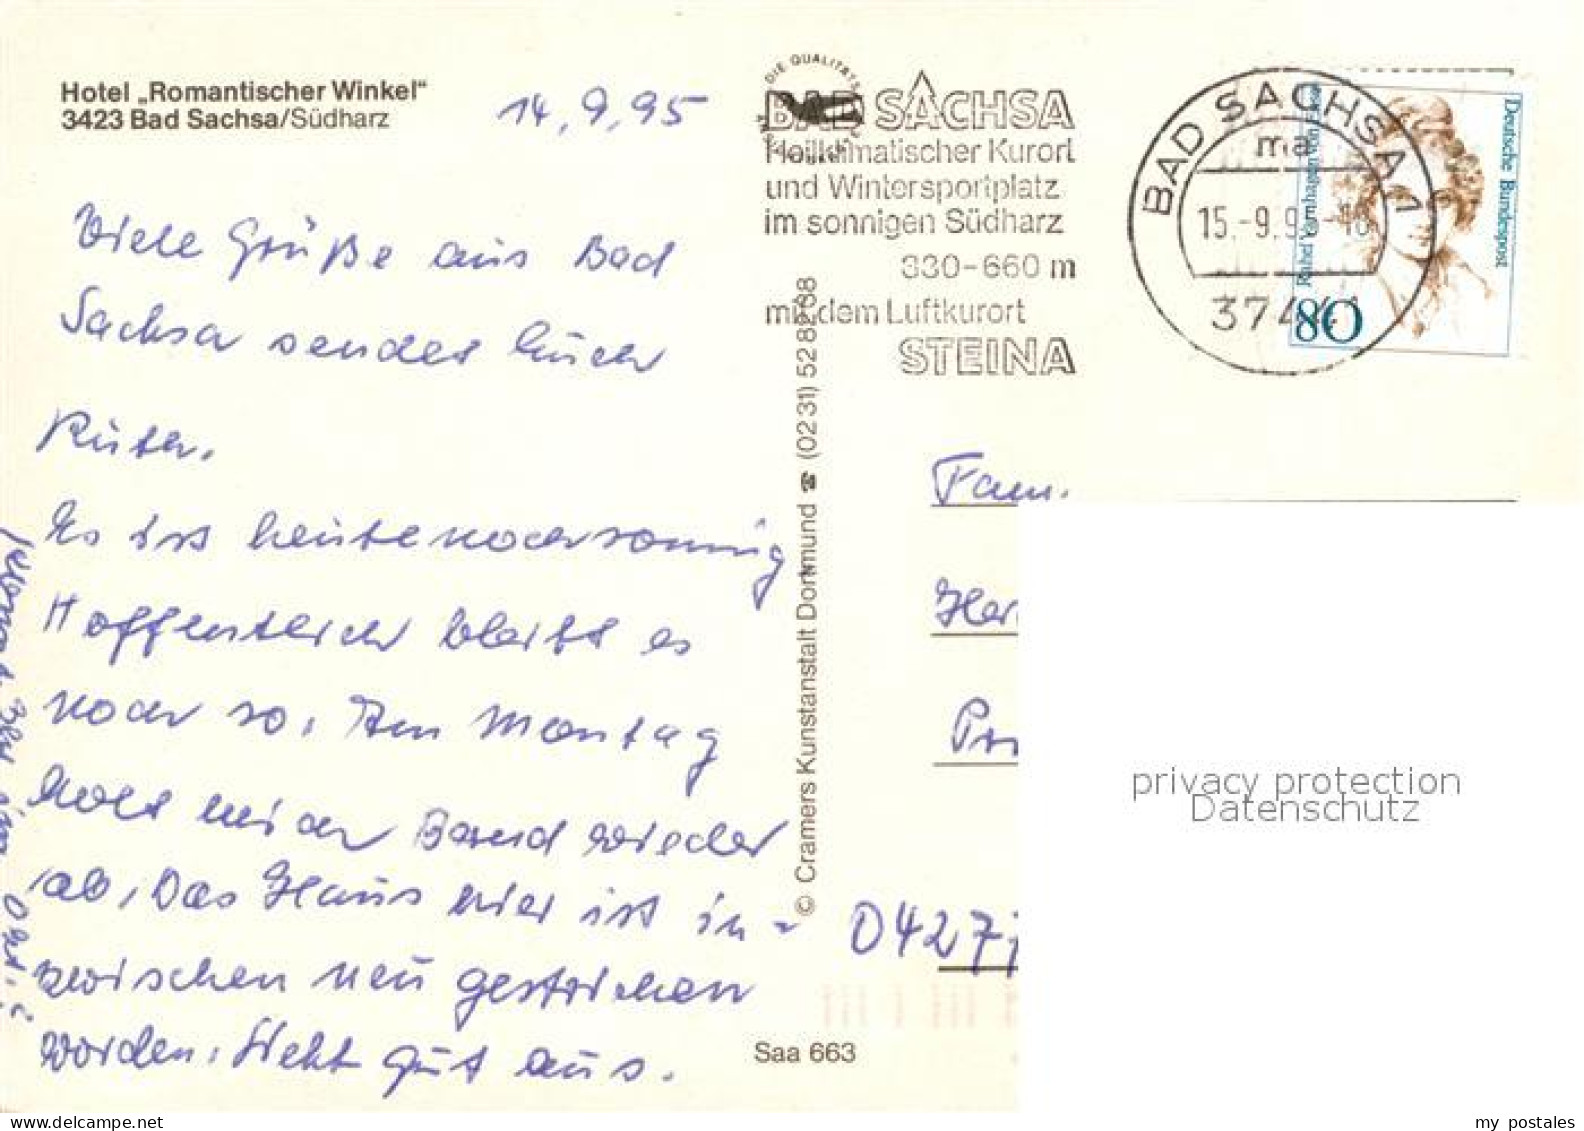 Hotel „Romantischer Winkel"
3423 Bad Sachsa/Südharz
14.9.95
Viele Grüße aus Bad
Sachsa sendet Euch
Es ist heute noch sonnig
Hoffentlich bleibt es
noch so. Am Montag
holt mich Bernd wieder
ab. Das Haus hier ist in-
zwischen neu gestrichen
worden. Sieht gut aus.
DIE QUALITÄTS
BAD SACHSA
Heilklimatischer Kurort
und Wintersportplatz
im sonnigen Südharz
330-660 m
mit dem Luftkurort
STEINA
BAD SACHSA 1
ma
15.-9.95-18
37441
Deutsche Bundespost
Rahel Varnhagen von Ense
80
© Cramers Kunstanstalt Dortmund ☎ (0231) 528868
Fam.
Her
Pr
04277
Saa 663
privacy protection
Datenschutz
my postales
delcampe.net